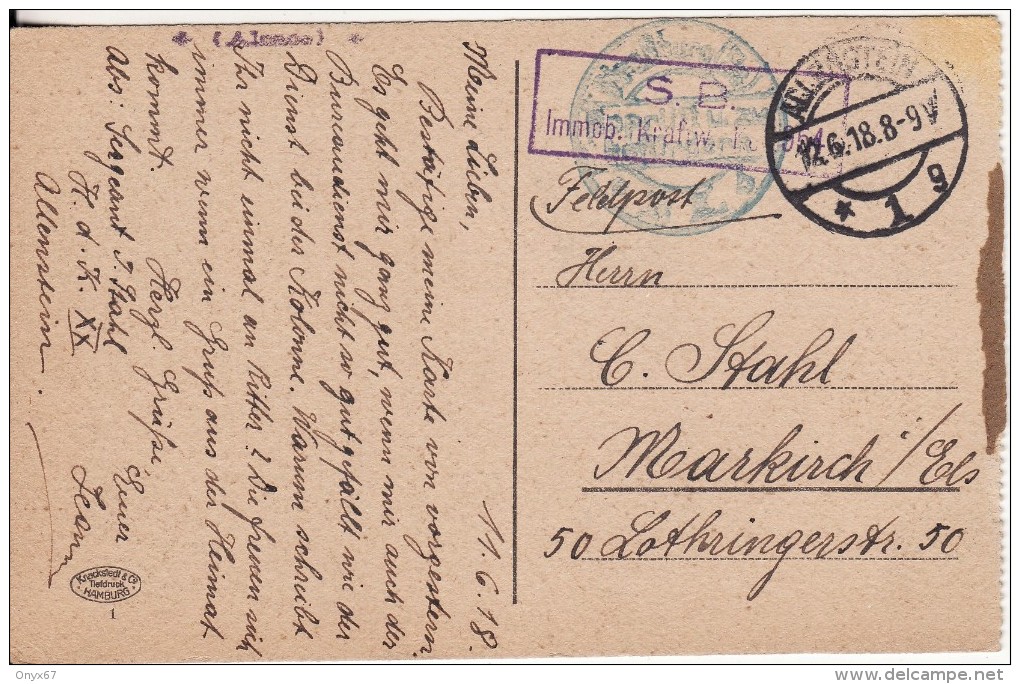 (Alsace)
11.6.18.
Meine Lieben,
Bestätige meine Karte von vorgestern.
Es geht mir ganz gut, wenn mir auch der
Bureaudienst nicht so gut gefällt wie der
Dienst bei der Kolonne. Warum schreibt
Ihr nicht einmal an Ritter? Die freuen sich
immer wenn ein Gruß aus der Heimat
kommt. Herzl. Grüße, Euer
Jean
Abs: Sergeant J. Stahl
K. d. K. XX
Allenstein.
Knackstedt & Co
Tiefdruck
HAMBURG
1
S. B.
Immob. Kraftw.
ALLENSTEIN
12.6.18.8-9V
* 1 g
Feldpost
Herrn
C. Stahl
Markirch i/Els
50 Lothringerstr. 50
Onyx67
delcampe.net